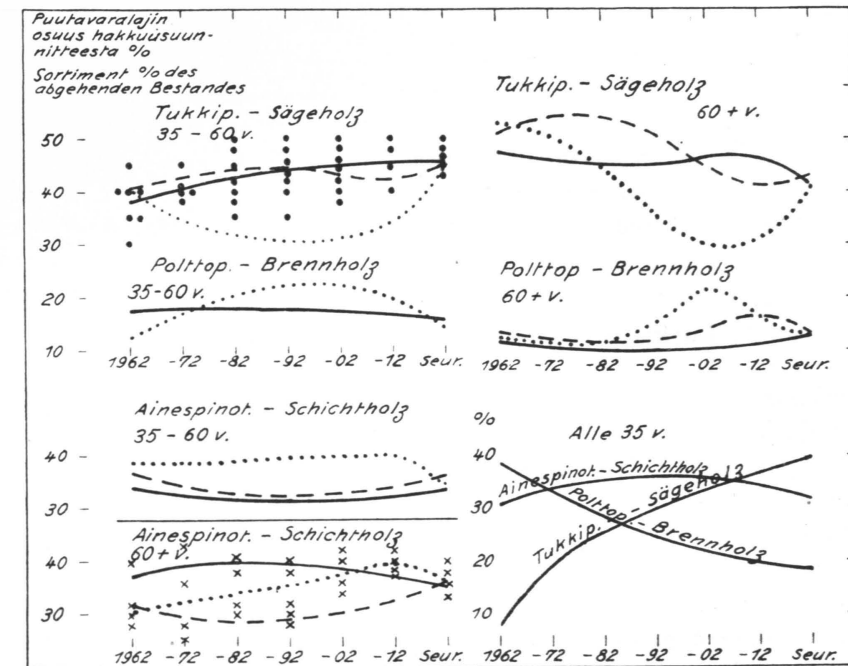 Puutavaralajin
osuus hakkuusuun-
nitteesta %
Sortiment % des
abgehenden Bestandes
Tukkip. - Sägeholz
35 - 60 v.
50
40
30
Polttop. - Brennholz
35-60 v.
20
10
1962 -72 -82 -92 -02 -12 Seur.
Tukkip. - Sägeholz
60 + v.
Polttop - Brennholz
60 + v.
1962 -72 -82 -92 -02 -12 Seur.
Ainespinot. - Schichtholz
35 - 60 v.
40
30
Ainespinot. - Schichtholz
60 + v.
40
30
1962 -72 -82 -92 -02 -12 Seur.
%
Alle 35 v.
40
30
20
10
Ainespinot. - Schichtholz
Polttop. - Brennholz
Tukkip. - Sägeholz
1962 -72 -82 -92 -02 -12 Seur.